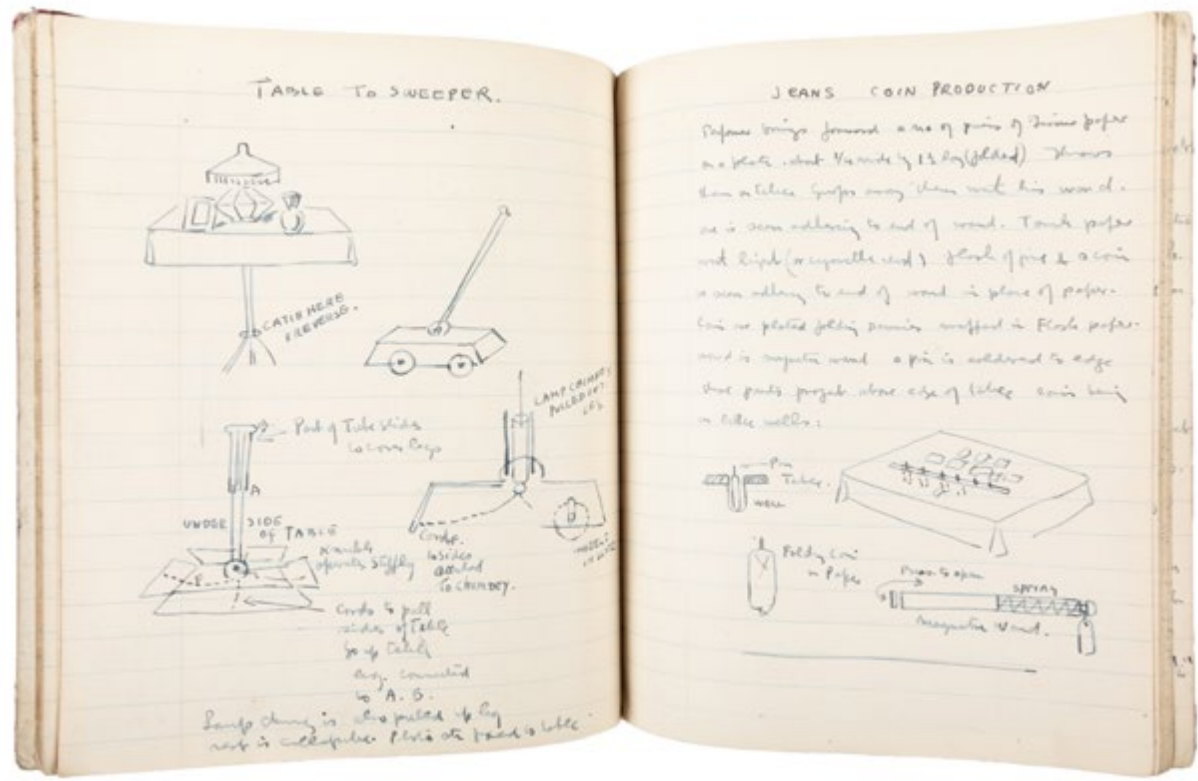 TABLE TO SWEEPER.
CATCH HERE
REVERSE.
Part of Tube slides
to cover legs
A
UNDER SIDE
OF TABLE
operates stiffly
LAMP CHIMNEY
PULLED INTO
LEG
Cords.
to sides
attached
to CHIMNEY.
Cords to pull
sides of Table
go up Table
leg. connected
to A. B.
Lamp chimney is also pulled up leg
rest is collapsible.
JEANS COIN PRODUCTION
Performer brings forward a no of pieces of Tissue paper
on a plate about wide by long (folded) Throws
them on table away them with his wand.
one is seen adhering to end of wand. Touch paper
with light (or cigarette end) flash of fire & a coin
is seen adhering to end of wand in place of paper.
Coins are plated folding pennies wrapped in Flash paper.
wand is magnetic wand a pin is soldered to edge
these parts project above edge of table coins being
in little wells:
Pin
Table.
WELL
Folding Coin
in Paper
Press to open
SPRING
Magnetic Wand.